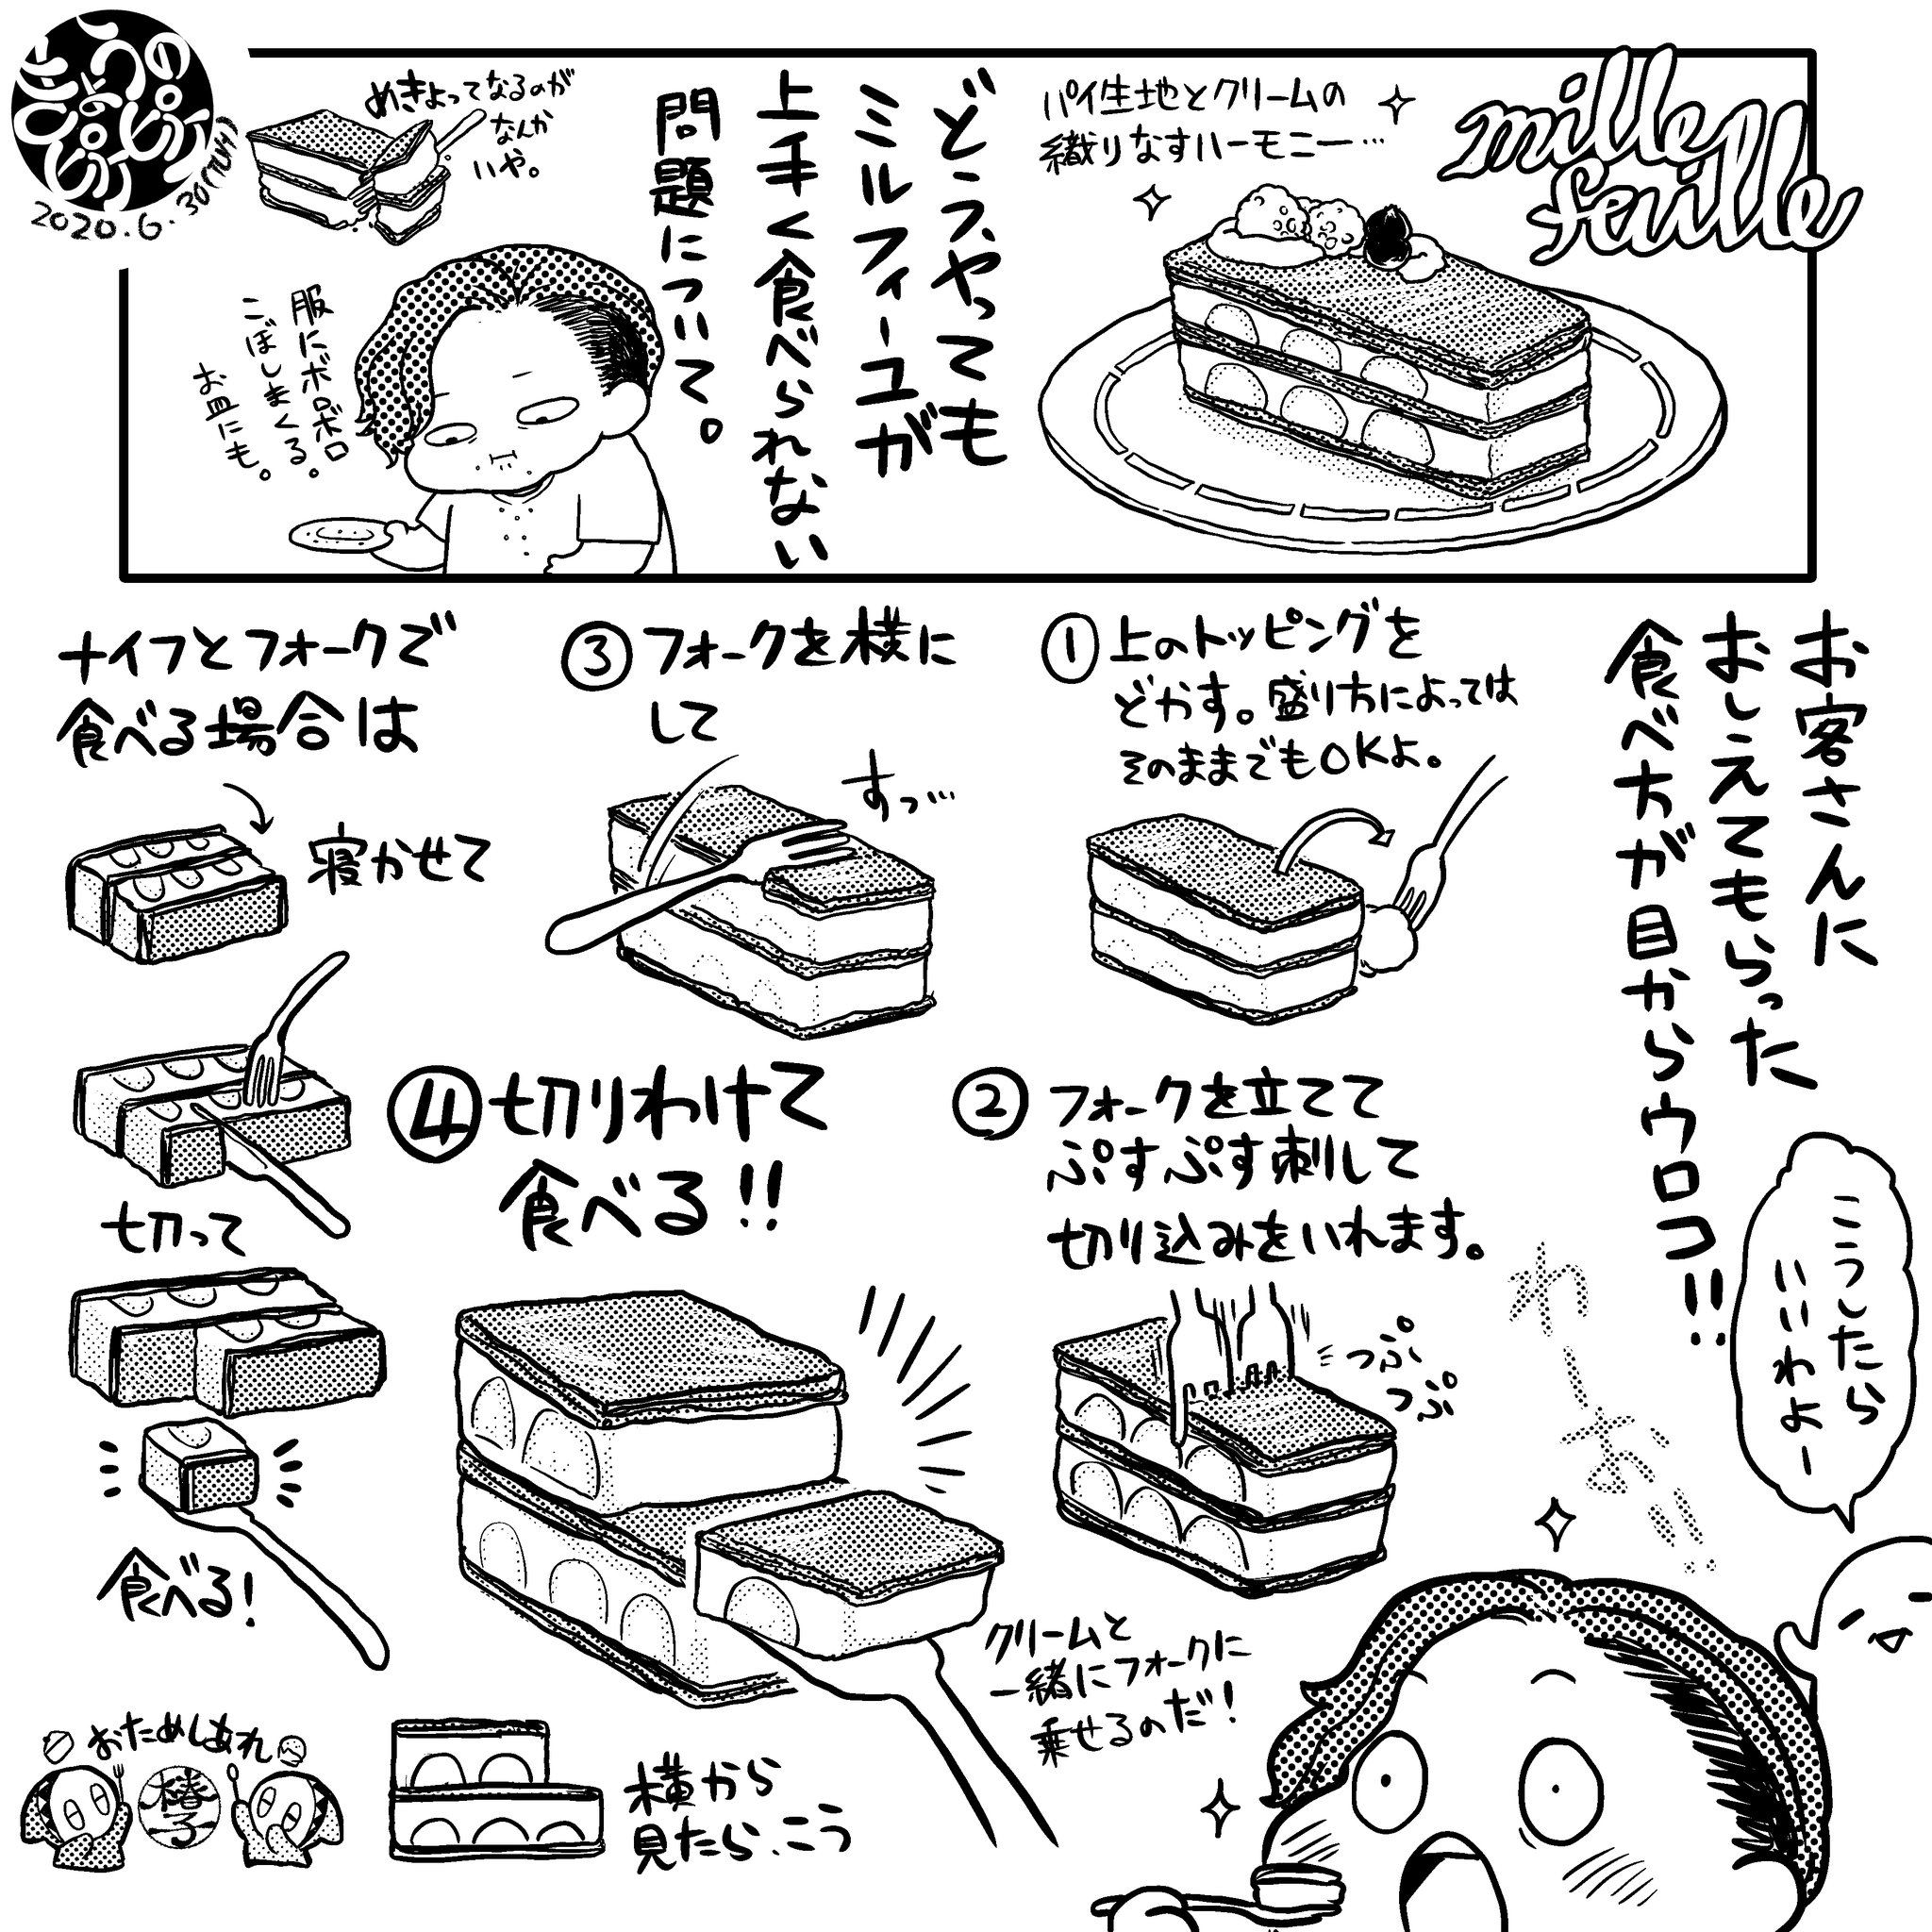 mille
feuille
パイ生地とクリームの
織りなすハーモニー…
どうやっても
ミルフィーユが
上手く食べられない
問題について。
めきょってなるのが
なんか
いや。
服にボロボロ
こぼしまくる。
お皿にも。
きょうの
ピピピピ
2020.6.30(TUE)
お客さんに
おしえてもらった
食べ方が目からウロコ!!
こうしたら
いいわよー
①上のトッピングを
どかす。盛り方によっては
そのままでもOKよ。
②フォークを立てて
ぷすぷす刺して
切り込みをいれます。
つぷ
つぷ
③フォークを横に
して
すっ…
④切りわけて
食べる!!
クリームと
一緒にフォークに
乗せるのだ!
横から
見たら、こう
ナイフとフォークで
食べる場合は
寝かせて
切って
食べる!
おためしあれ
椿子